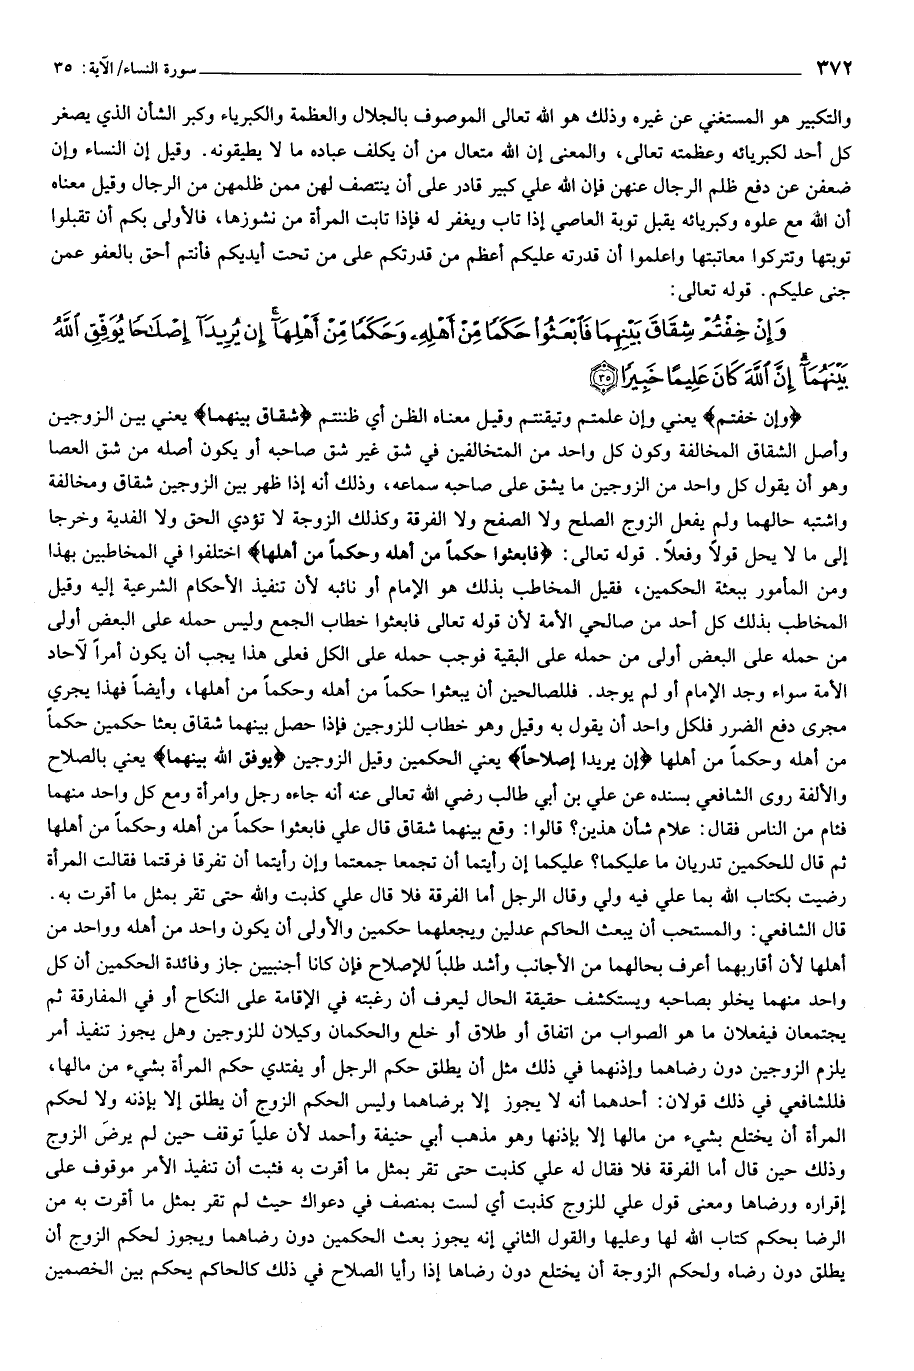 ٣٧٢ سورة النساء/ الآية: ٣٥
والتكبير هو المستغني عن غيره وذلك هو الله تعالى الموصوف بالجلال والعظمة والكبرياء وكبر الشأن الذي يصغر
كل أحد لكبريائه وعظمته تعالى، والمعنى إن الله متعال من أن يكلف عباده ما لا يطيقونه. وقيل إن النساء وإن
ضعفن عن دفع ظلم الرجال عنهن فإن الله علي كبير قادر على أن ينتصف لهن ممن ظلمهن من الرجال وقيل معناه
أن الله مع علوه وكبريائه يقبل توبة العاصي إذا تاب ويغفر له فإذا تابت المرأة من نشوزها، فالأولى بكم أن تقبلوا
توبتها وتتركوا معاتبتها واعلموا أن قدرته عليكم أعظم من قدرتكم على من تحت أيديكم فأنتم أحق بالعفو عمن
جنى عليكم. قوله تعالى:
وَإِنْ خِفْتُمْ شِقَاقَ بَيْنِهِمَا فَٱبْعَثُوا۟ حَكَمًا مِّنْ أَهْلِهِۦ وَحَكَمًا مِّنْ أَهْلِهَآ ۚ إِن يُرِيدَآ إِصْلَـٰحًا يُوَفِّقِ ٱللَّهُ
بَيْنَهُمَآ ۗ إِنَّ ٱللَّهَ كَانَ عَلِيمًا خَبِيرًا ﴿٣٥﴾
﴿وإن خفتم﴾ يعني وإن علمتم وتيقنتم وقيل معناه الظن أي ظننتم ﴿شقاق بينهما﴾ يعني بين الزوجين
وأصل الشقاق المخالفة وكون كل واحد من المتخالفين في شق غير شق صاحبه أو يكون أصله من شق العصا
وهو أن يقول كل واحد من الزوجين ما يشق على صاحبه سماعه، وذلك أنه إذا ظهر بين الزوجين شقاق ومخالفة
واشتبه حالهما ولم يفعل الزوج الصلح ولا الصفح ولا الفرقة وكذلك الزوجة لا تؤدي الحق ولا الفدية وخرجا
إلى ما لا يحل قولاً وفعلاً. قوله تعالى: ﴿فابعثوا حكماً من أهله وحكماً من أهلها﴾ اختلفوا في المخاطبين بهذا
ومن المأمور ببعثة الحكمين، فقيل المخاطب بذلك هو الإمام أو نائبه لأن تنفيذ الأحكام الشرعية إليه وقيل
المخاطب بذلك كل أحد من صالحي الأمة لأن قوله تعالى فابعثوا خطاب الجمع وليس حمله على البعض أولى
من حمله على البعض أولى من حمله على البقية فوجب حمله على الكل فعلى هذا يجب أن يكون أمراً لآحاد
الأمة سواء وجد الإمام أو لم يوجد. فللصالحين أن يبعثوا حكماً من أهله وحكماً من أهلها، وأيضاً فهذا يجري
مجرى دفع الضرر فلكل واحد أن يقول به وقيل وهو خطاب للزوجين فإذا حصل بينهما شقاق بعثا حكمين حكماً
من أهله وحكماً من أهلها ﴿إن يريدا إصلاحاً﴾ يعني الحكمين وقيل الزوجين ﴿يوفق الله بينهما﴾ يعني بالصلاح
والألفة روى الشافعي بسنده عن علي بن أبي طالب رضي الله تعالى عنه أنه جاءه رجل وامرأة ومع كل واحد منهما
فئام من الناس فقال: علام شأن هذين؟ قالوا: وقع بينهما شقاق قال علي فابعثوا حكماً من أهله وحكماً من أهلها
ثم قال للحكمين تدريان ما عليكما؟ عليكما إن رأيتما أن تجمعا جمعتما وإن رأيتما أن تفرقا فرقتما فقالت المرأة
رضيت بكتاب الله بما علي فيه ولي وقال الرجل أما الفرقة فلا قال علي كذبت والله حتى تقر بمثل ما أقرت به.
قال الشافعي: والمستحب أن يبعث الحاكم عدلين ويجعلهما حكمين والأولى أن يكون واحد من أهله وواحد من
أهلها لأن أقاربهما أعرف بحالهما من الأجانب وأشد طلباً للإصلاح فإن كانا أجنبيين جاز وفائدة الحكمين أن كل
واحد منهما يخلو بصاحبه ويستكشف حقيقة الحال ليعرف أن رغبته في الإقامة على النكاح أو في المفارقة ثم
يجتمعان فيفعلان ما هو الصواب من اتفاق أو طلاق أو خلع والحكمان وكيلان للزوجين وهل يجوز تنفيذ أمر
يلزم الزوجين دون رضاهما وإذنهما في ذلك مثل أن يطلق حكم الرجل أو يفتدي حكم المرأة بشيء من مالها،
فللشافعي في ذلك قولان: أحدهما أنه لا يجوز إلا برضاهما وليس الحكم الزوج أن يطلق إلا بإذنه ولا لحكم
المرأة أن يختلع بشيء من مالها إلا بإذنها وهو مذهب أبي حنيفة وأحمد لأن علياً توقف حين لم يرضَ الزوج
وذلك حين قال أما الفرقة فلا فقال له علي كذبت حتى تقر بمثل ما أقرت به فثبت أن تنفيذ الأمر موقوف على
إقراره ورضاها ومعنى قول علي للزوج كذبت أي لست بمنصف في دعواك حيث لم تقر بمثل ما أقرت به من
الرضا بحكم كتاب الله لها وعليها والقول الثاني إنه يجوز بعث الحكمين دون رضاهما ويجوز لحكم الزوج أن
يطلق دون رضاه ولحكم الزوجة أن يختلع دون رضاها إذا رأيا الصلاح في ذلك كالحاكم يحكم بين الخصمين